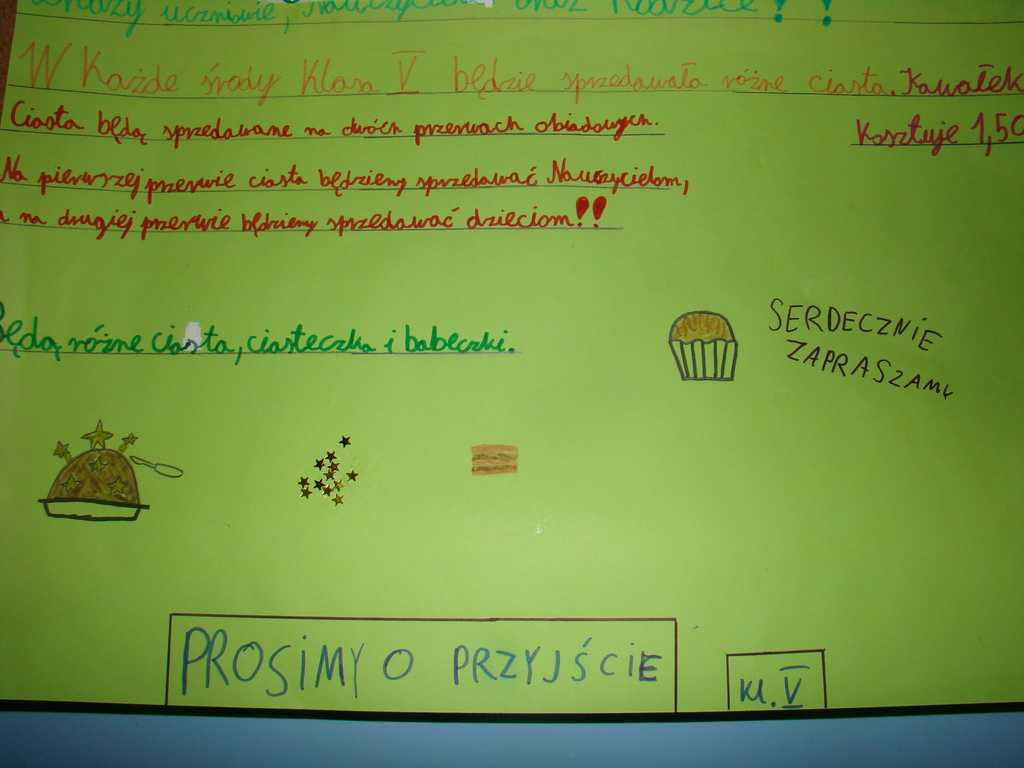 Drodzy uczniowie, Nauczyciele oraz Rodzice!!
W Każde środy Klasa V będzie sprzedawała różne ciasta. Kawałek
Kosztuje 1,50
Ciasta będą sprzedawane na dwóch przerwach obiadowych.
Na pierwszej przerwie ciasta będziemy sprzedawać Nauczycielom,
a na drugiej przerwie będziemy sprzedawać dzieciom!!
Będą różne ciasta, ciasteczka i babeczki.
SERDECZNIE
ZAPRASZAMY
PROSIMY O PRZYJŚCIE
kl. V